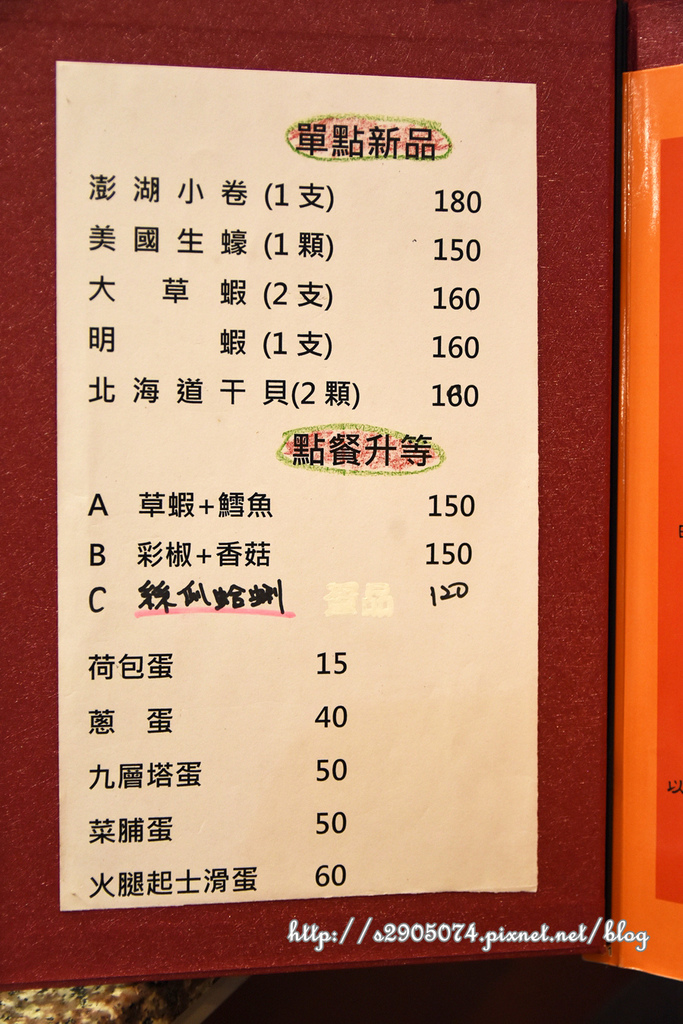 單點新品
澎湖小卷 (1 支) 180
美國生蠔 (1 顆) 150
大草蝦 (2 支) 160
明蝦 (1 支) 160
北海道干貝(2 顆) 160
點餐升等
A 草蝦+鱈魚 150
B 彩椒+香菇 150
C 絲瓜蛤蜊 120
荷包蛋 15
蔥蛋 40
九層塔蛋 50
菜脯蛋 50
火腿起士滑蛋 60
以
http://s2905074.pixnet.net/blog